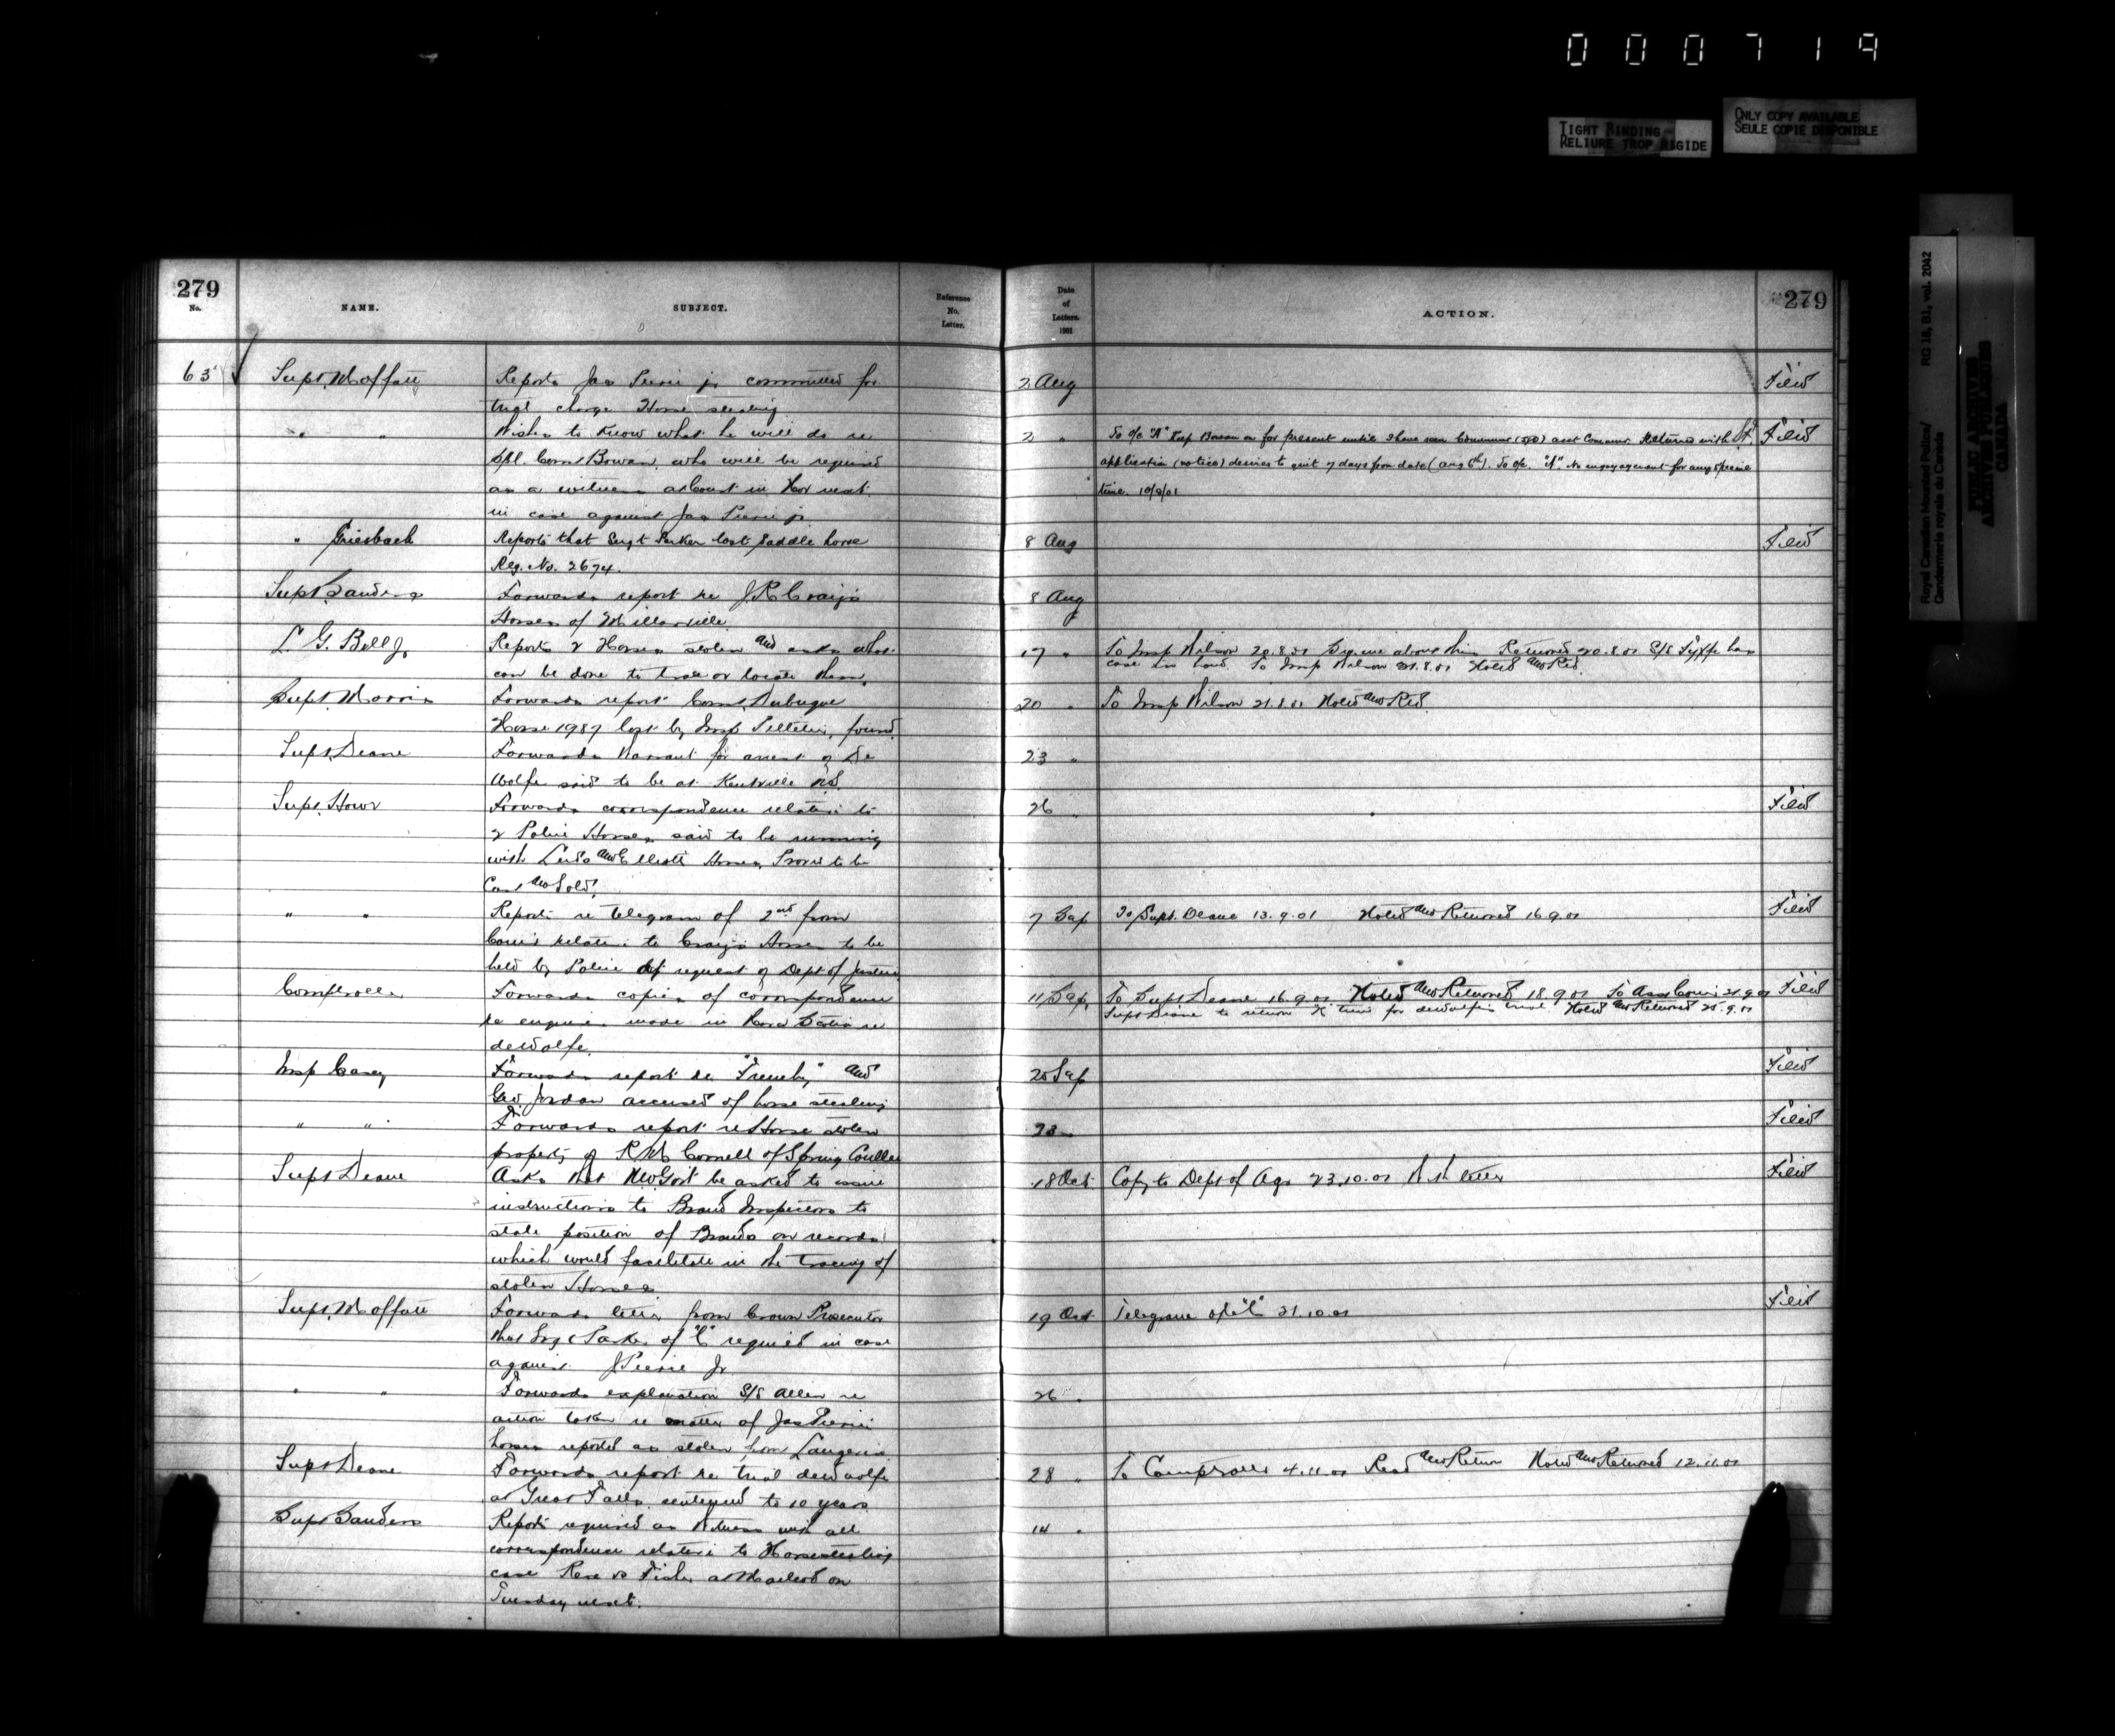 000719
TIGHT BINDING
RELIURE TROP RIGIDE
ONLY COPY AVAILABLE
SEULE COPIE DISPONIBLE
Royal Canadian Mounted Police/ RG 18, B1, vol. 2042
Gendarmerie royale du Canada
PUBLIC ARCHIVES
ARCHIVES PUBLIQUES
CANADA
279
No. NAME. SUBJECT. Reference No. Letter. Date of Letters. 1901 ACTION. 279
63 Supt. Moffatt Reports Jas Peirie jr committed for 2 Aug Filed
trial charge Horse stealing
" " Wishes to know what he will do re 2 " To O/c "A" Keep Bowan on for present until I have seen asst Commr. Returned with Filed
Spl. Const Bowan, who will be required application (notice) desires to quit 7 days from date (aug 6th). To O/c. "A". No engagement for any special
as a witness at Court in Nov next time. 10/8/01
in case against Jas Peirie jr.
" Griesbach Reports that Sergt Parker lost saddle horse 8 Aug Filed
Reg. No. 2674.
Supt Sanders Forwards report re J R Craig's 8 Aug
Horses of Millarville
L. G. Bell Jr Reports 2 Horses stolen and asks what 17 " To Insp Wilson 20.8.01 Returned 20.8.01 S/S Fyffe has
can be done to trace or locate them. case in hand. To Insp Wilson 21.8.01 Noted and Retd.
Supt. Morris Forwards report Const. Dubuque 20 " To Insp Wilson 21.8.01 Noted and Retd.
Horse 1987 lost by Insp Pelletier, found.
Supt. Deane Forwards Warrant for arrest of De 23 "
Wolfe said to be at Kentville NS.
Supt. Howe Forwards correspondence relative to 26 " Filed
2 Police Horses said to be running
with and Elliotts Horses, Prove to be
Cast and Sold.
" " Reports re telegram of 2nd from 7 Sep To Supt. Deane 13.9.01 Noted and Returned 16.9.01 Filed
Comr relative to Craig's Horses to be
held by Police at request of Dept of Justice
Comptroller Forwards copies of correspondence 11 Sep. To Supt Deane 16.9.01. Noted and Returned 18.9.01 To Asst Comr 21.9.01 Filed
re enquiries made in Nova Scotia re Supt Deane to return in time for deWolfe's trial Noted and Returned 25.9.01
deWolfe.
Insp Casey Forwards report re "Frenchy" and 20 Sep Filed
Geo. Jordan accused of horse stealing
" " Forwards report re Horse stolen 23 " Filed
property of R M Cornell of Spring Coulee
Supt Deane Asks that NW Govt be asked to issue 18 Oct Copy to Dept of Agr 23.10.01 letter Filed
instructions to Brand Inspectors to
state position of Brands on records
which would facilitate in the tracing of
stolen Horses
Supt. Moffatt Forwards letter from Crown Prosecutor 19 Oct Telegram O/c "C" 21.10.01 Filed
that Sergt Parker of "C" required in case
against J Peirie Jr
" " Forwards explanation S/S Allen re 26 "
action taken re matter of Jas Peirie
horses reported as stolen from Langevin
Supt Deane Forwards report re trial deWolfe 28 " To Comptroller 4.11.01 Read and Return Noted and Returned 12.11.01
at Great Falls sentenced to 10 years
Supt Sanders Reports required as Witness with all 14 "
correspondence relative to Horsestealing
case Rex vs Fisher at Macleod on
Tuesday next.